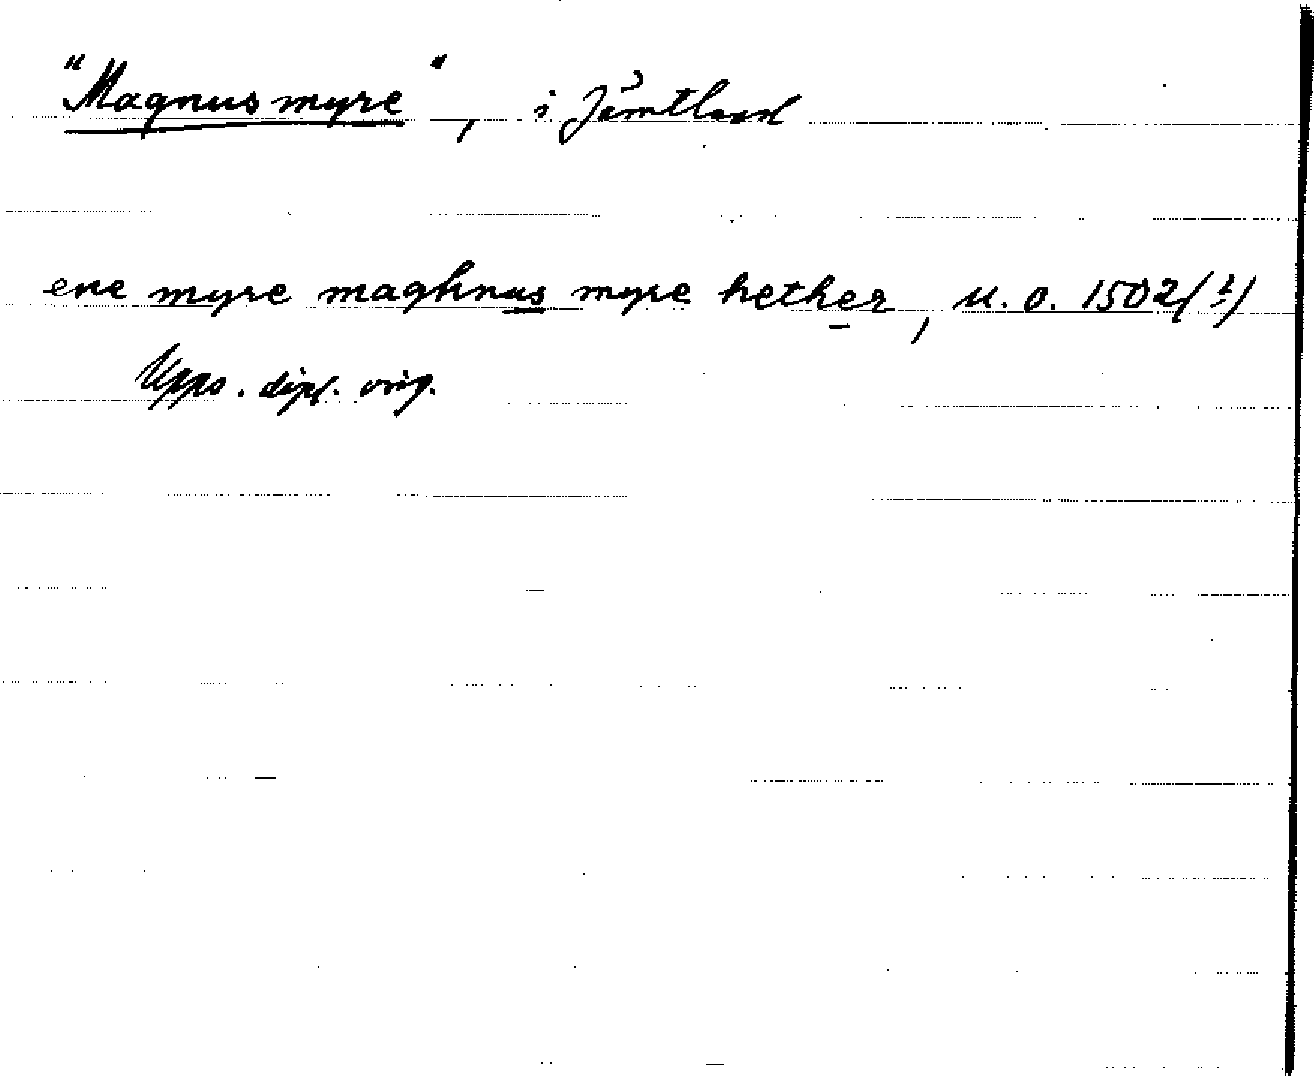 "Magnus myre", i Jämtland
ene myre maghnus myre hether, u. o. 1502(?)
Upps. dipl. orig.